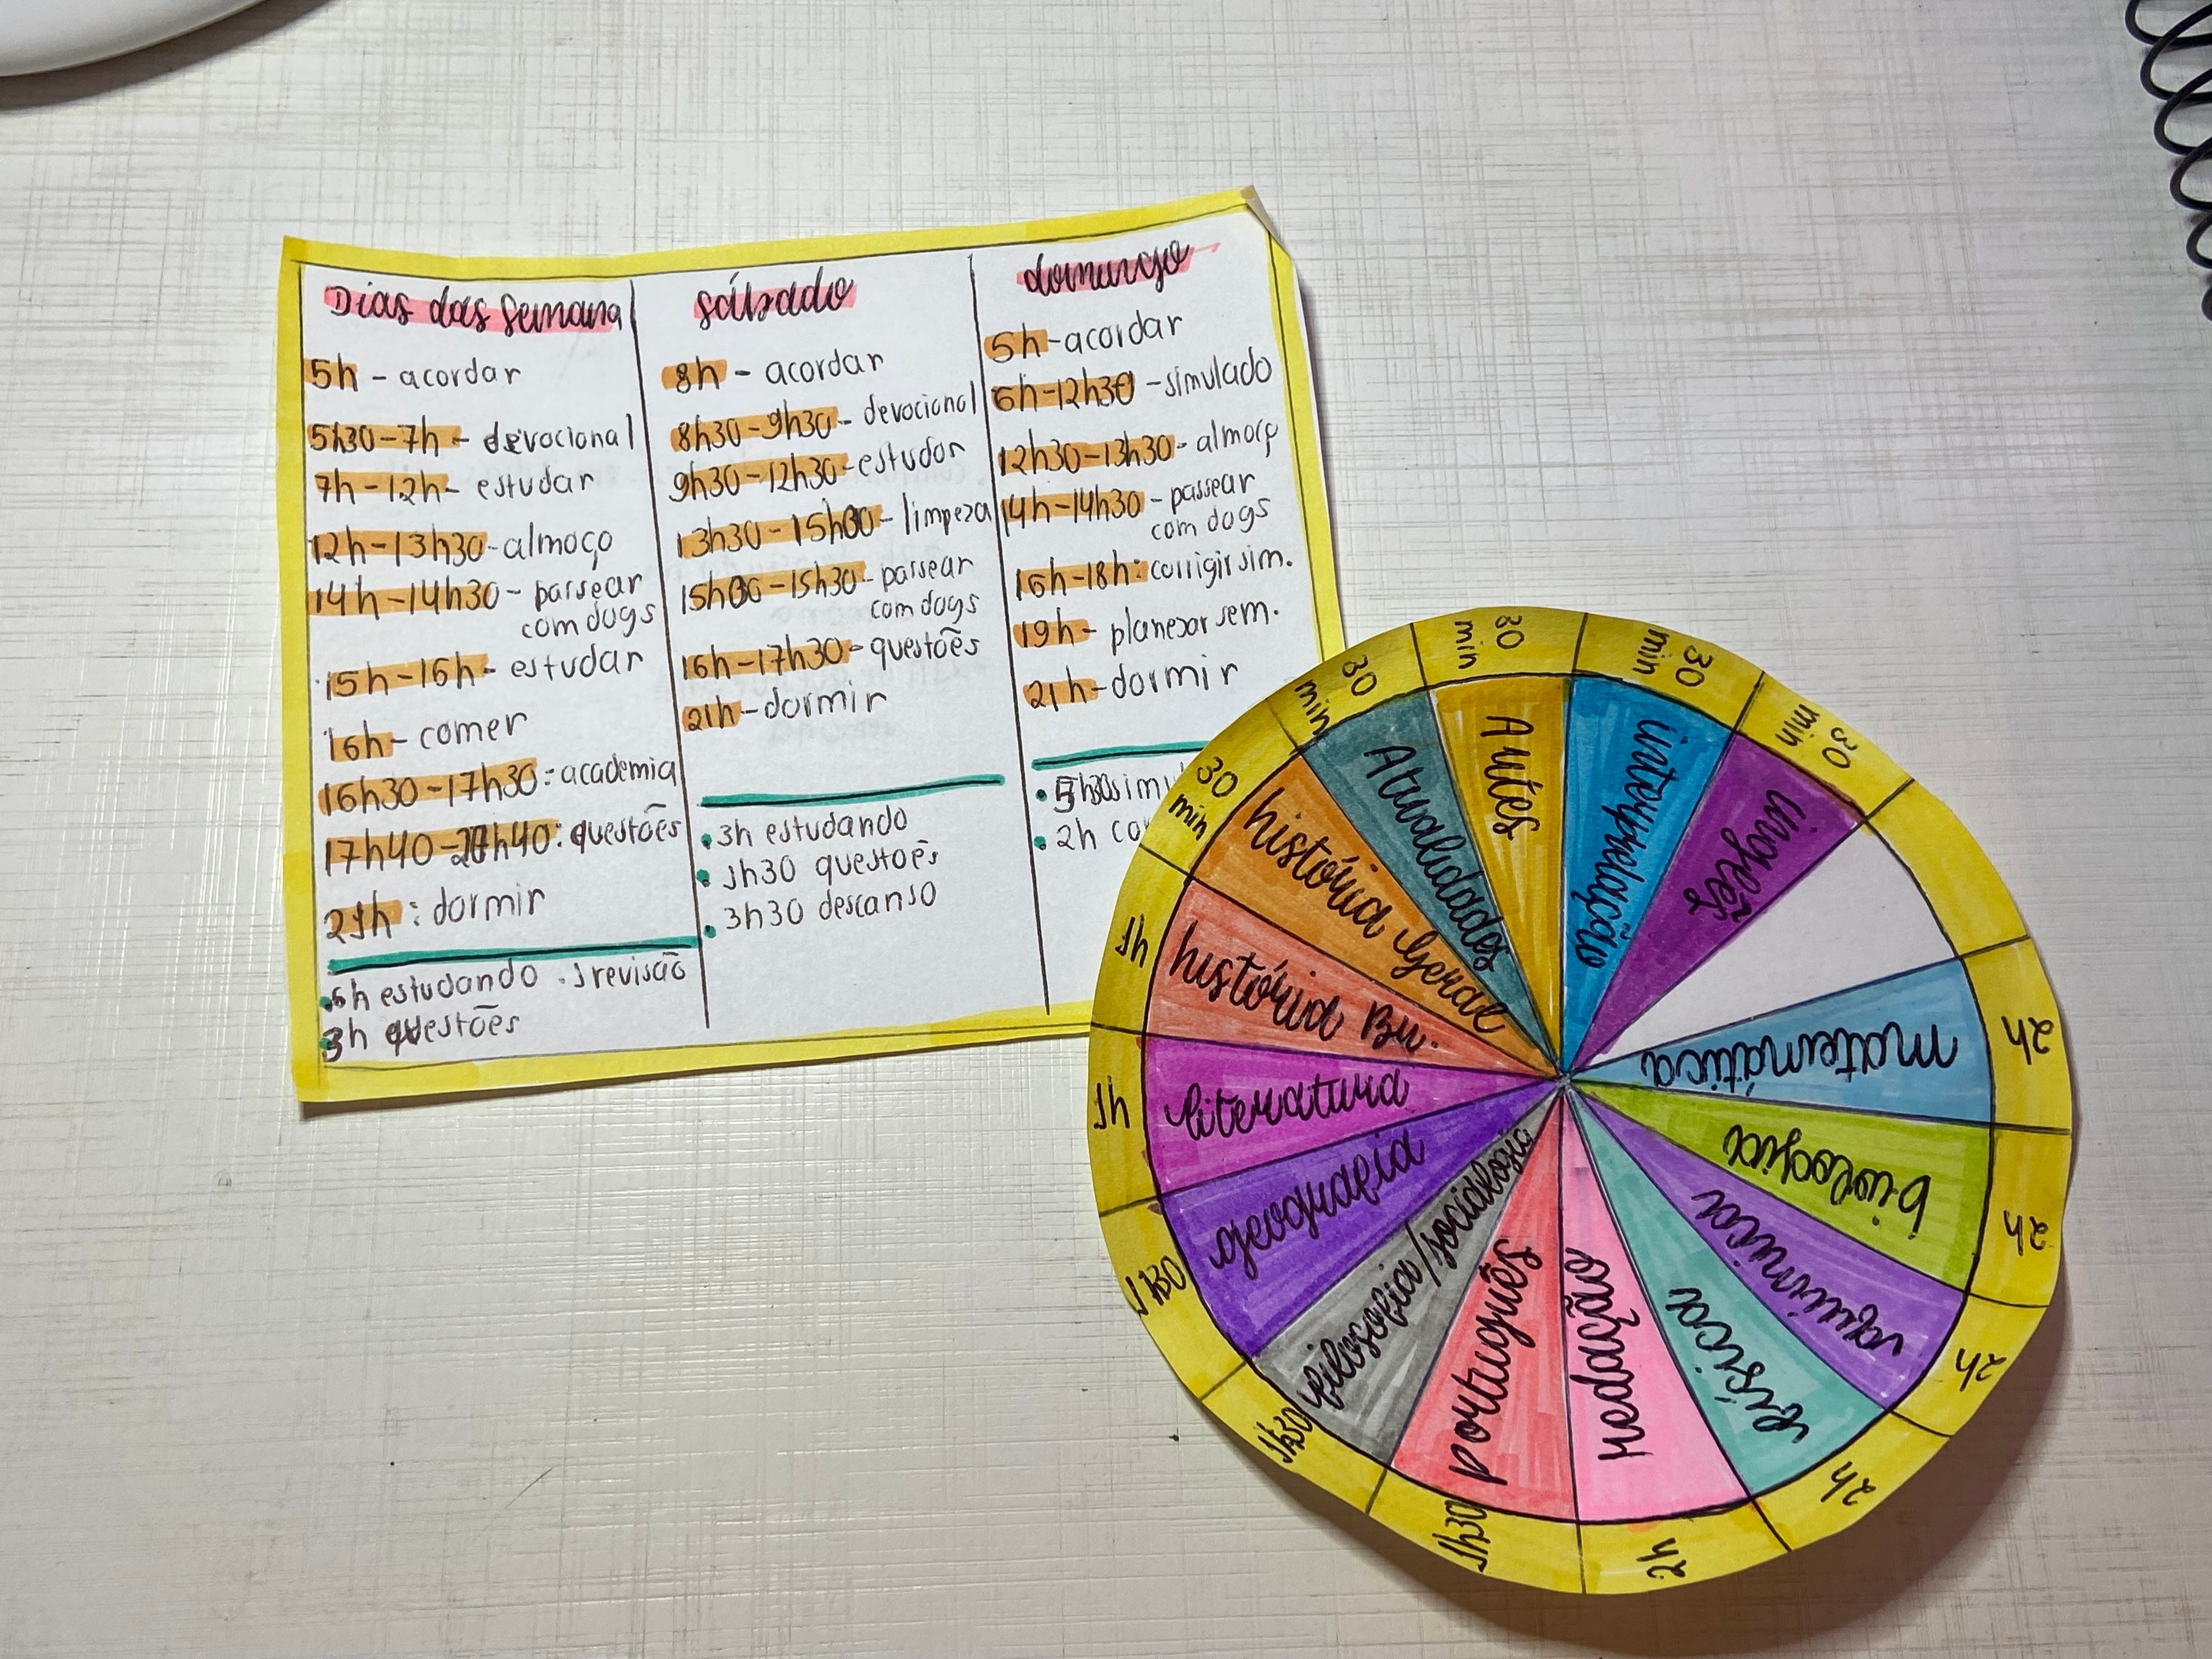 Dias das semana
5h - acordar
5h30-7h - devocional
7h-12h - estudar
12h-13h30-almoço
14h-14h30- passear
com dogs
15h-16h- estudar
16h- comer
16h30-17h30: academia
questões
21h: dormir
estudando . 1 revisão
3h questões
sábado
8h - acordar
8h30-9h30- devocional
9h30-12h30-estudar
13h30-15h00- limpeza
15h00-15h30- passear
com dogs
16h-17h30- questões
21h-dormir
• 3h estudando
• 1h30 questões
• 3h30 descanso
domingo
5h-acordar
6h-12h30 -simulado
12h30-13h30- almoço
14h-14h30- passear
com dogs
16h-18h: corrigir sim.
19h- planejar sem.
21h-dormir
• 2h
30
min
Artes
30
min
interpretação
30
min
inglês
2h
matemática
2h
biologia
2h
química
2h
física
2h
redação
1h30
português
1h30
filosofia/sociologia
1h30
geografia
1h
literatura
1h
história Br.
30
min
história Geral
30
min
Atualidades